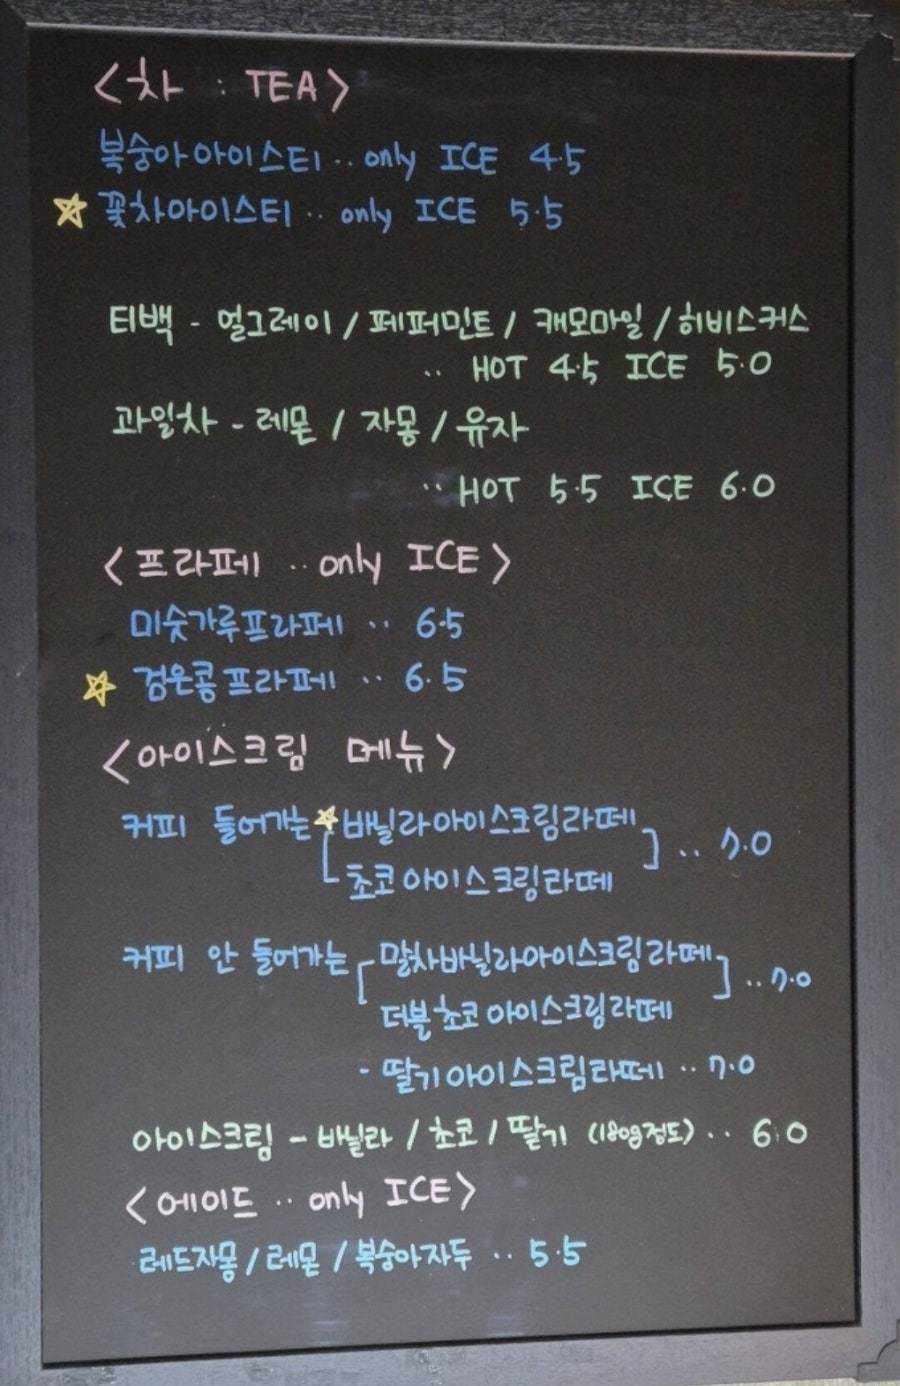 <차 : TEA>
복숭아아이스티 ·· only ICE 4.5
☆ 꽃차아이스티 ·· only ICE 5.5
티백 - 얼그레이 / 페퍼민트 / 캐모마일 / 히비스커스
·· HOT 4.5 ICE 5.0
과일차 - 레몬 / 자몽 / 유자
·· HOT 5.5 ICE 6.0
<프라페 ·· only ICE>
미숫가루프라페 ·· 6.5
☆ 검은콩프라페 ·· 6.5
<아이스크림 메뉴>
커피 들어가는 ☆ 바닐라아이스크림라떼
초코아이스크림라떼 ] ·· 7.0
커피 안 들어가는 [ 말차바닐라아이스크림라떼
더블초코아이스크림라떼 ] ·· 7.0
- 딸기아이스크림라떼 ·· 7.0
아이스크림 - 바닐라 / 초코 / 딸기 (180g정도) ·· 6.0
<에이드 ·· only ICE>
레드자몽 / 레몬 / 복숭아자두 ·· 5.5